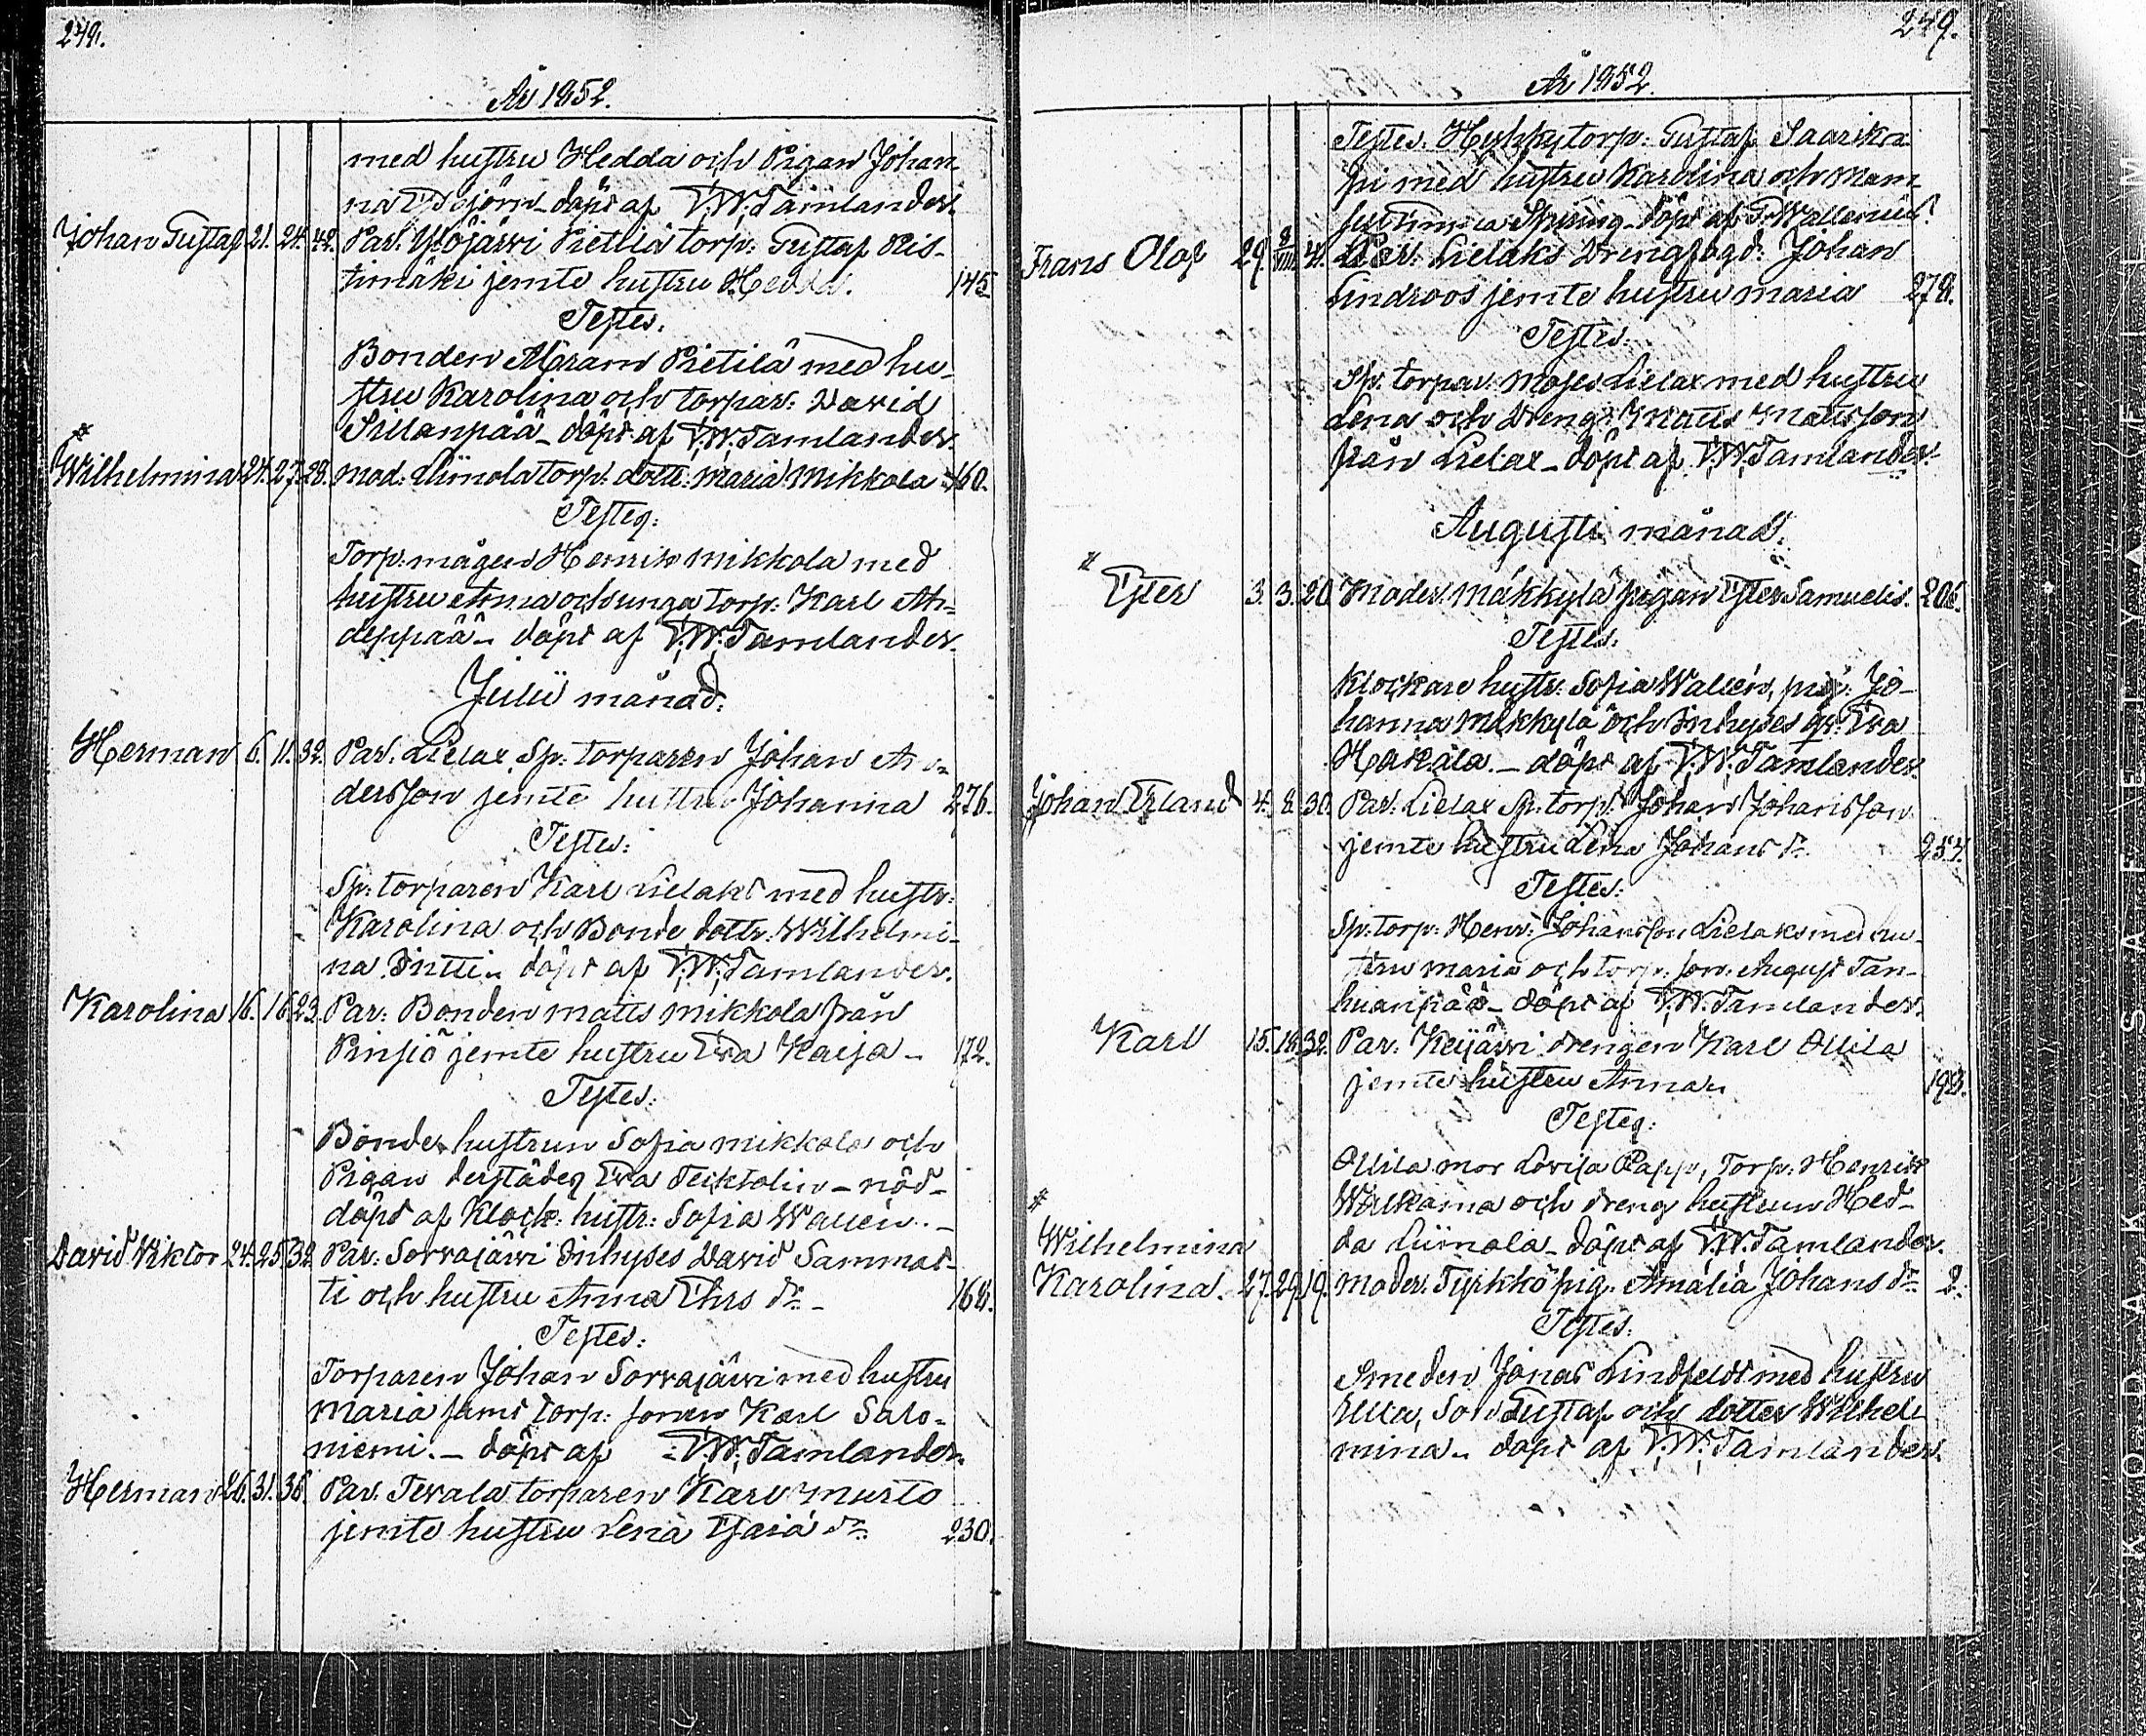 248.
År 1852.
med hustru Hedda och Pigan Johan-
na döpt af V.W. Tamlander.
Johan Gustaf 21. 24. 42. Par. Ylöjärvi Pietilä torp: Gustaf Ris-
timäki jemte hustru Hedda. 145
Testes.
Bonden Abram Pietilä med hu-
stru Karolina och torpar: David
Siilanpää - döpt af V.W. Tamlander.
* Wilhelmina 24. 27. 28. Mod: Liimola torp: dott: Maria Mikkola 160.
Testes:
Torp: mågen Henrik Mikkola med
hustru Anna och unga torp: Karl An-
deppää - döpt af V.W. Tamlander.
Julii månad.
Herman 6. 11. 32. Par. Lielax Sp: torparen Johan An-
dersson jemte hustru Johanna 276.
Testes:
Sp: torparen Karl Lielaks med hustr:
Karolina och Bonde dottr: Wilhelmi-
na Intti - döpt af V.W. Tamlander.
Karolina 16. 16. 23. Par: Bonden Matts Mikkola från
Pinsiö jemte hustru Eva Kaisa - 172.
Testes:
Bonde hustrun Sofia Mikkola och
Pigan derstädes Eva - nöd-
döpt af Klock: hustr: Sofia Wallén. -
David Viktor 24. 25. 32. Par: Sorvajärvi Inhyses David Sammat-
ti och hustru Anna Ehrs dr - 168.
Testes:
Torparen Johan Sorvajärvi med hustru
Maria samt torp: sonen Karl Salo-
niemi. - döpt af V.W. Tamlander.
Herman 26. 31. 36. Par. Tevala torparen Karl Murto
jemte hustru Lena Esaiæ dr 230.
249.
År 1852.
Testes. Hyhky torp: Gustaf Saarikos-
pi med hustru Karolina och Mam-
sell Spring - döpt af Wallenius.
Frans Olof 29. 8/VIII. 41. Par: Lielaks Drengfogd: Johan
Lindroos jemte hustru Maria 278.
Testes:
Sp. torpar: Moses Lielax med hustru
Lena och Dreng: Matts Mattsson
från Lielax - döpt af V.W. Tamlander.
Augusti månad.
* Ester 3. 3. 20. Moder: Mäkkylä pigan Ester Samuelis. 206.
Testes:
Klockare hustr: Sofia Wallén, pig: Jo-
hanna Mäkkylä och Inhyses qv: Eva
Hakala. - döpt af V.W. Tamlander.
Johan Erland 4. 8. 30. Par: Lielax Sp: torp: Johan Johansson
jemte hustru Lena Johans dr 254.
Testes:
Sp: torp: Henr: Johansson Lielaks med hu-
stru Maria och torp: son August Tan-
huanpää - döpt af V.W. Tamlander.
Karl 15. 18. 32. Par. Keijärvi drengen Karl Ollila
jemte hustru Anna - 193.
Testes:
Ollila mor Lovisa Papp, Torp: Henrik
Walkama och dreng hustrun Hed-
da Liimola - döpt af V.W. Tamlander.
* Wilhelmina
Karolina. 27. 29. 19. Moder. Tyrkkö pig. Amalia Johans dr 2.
Testes:
Smeden Jonas Lindfeldt med hustru
Ulla, Son Gustaf och dotter Wilhel-
mina - döpt af V.W. Tamlander.